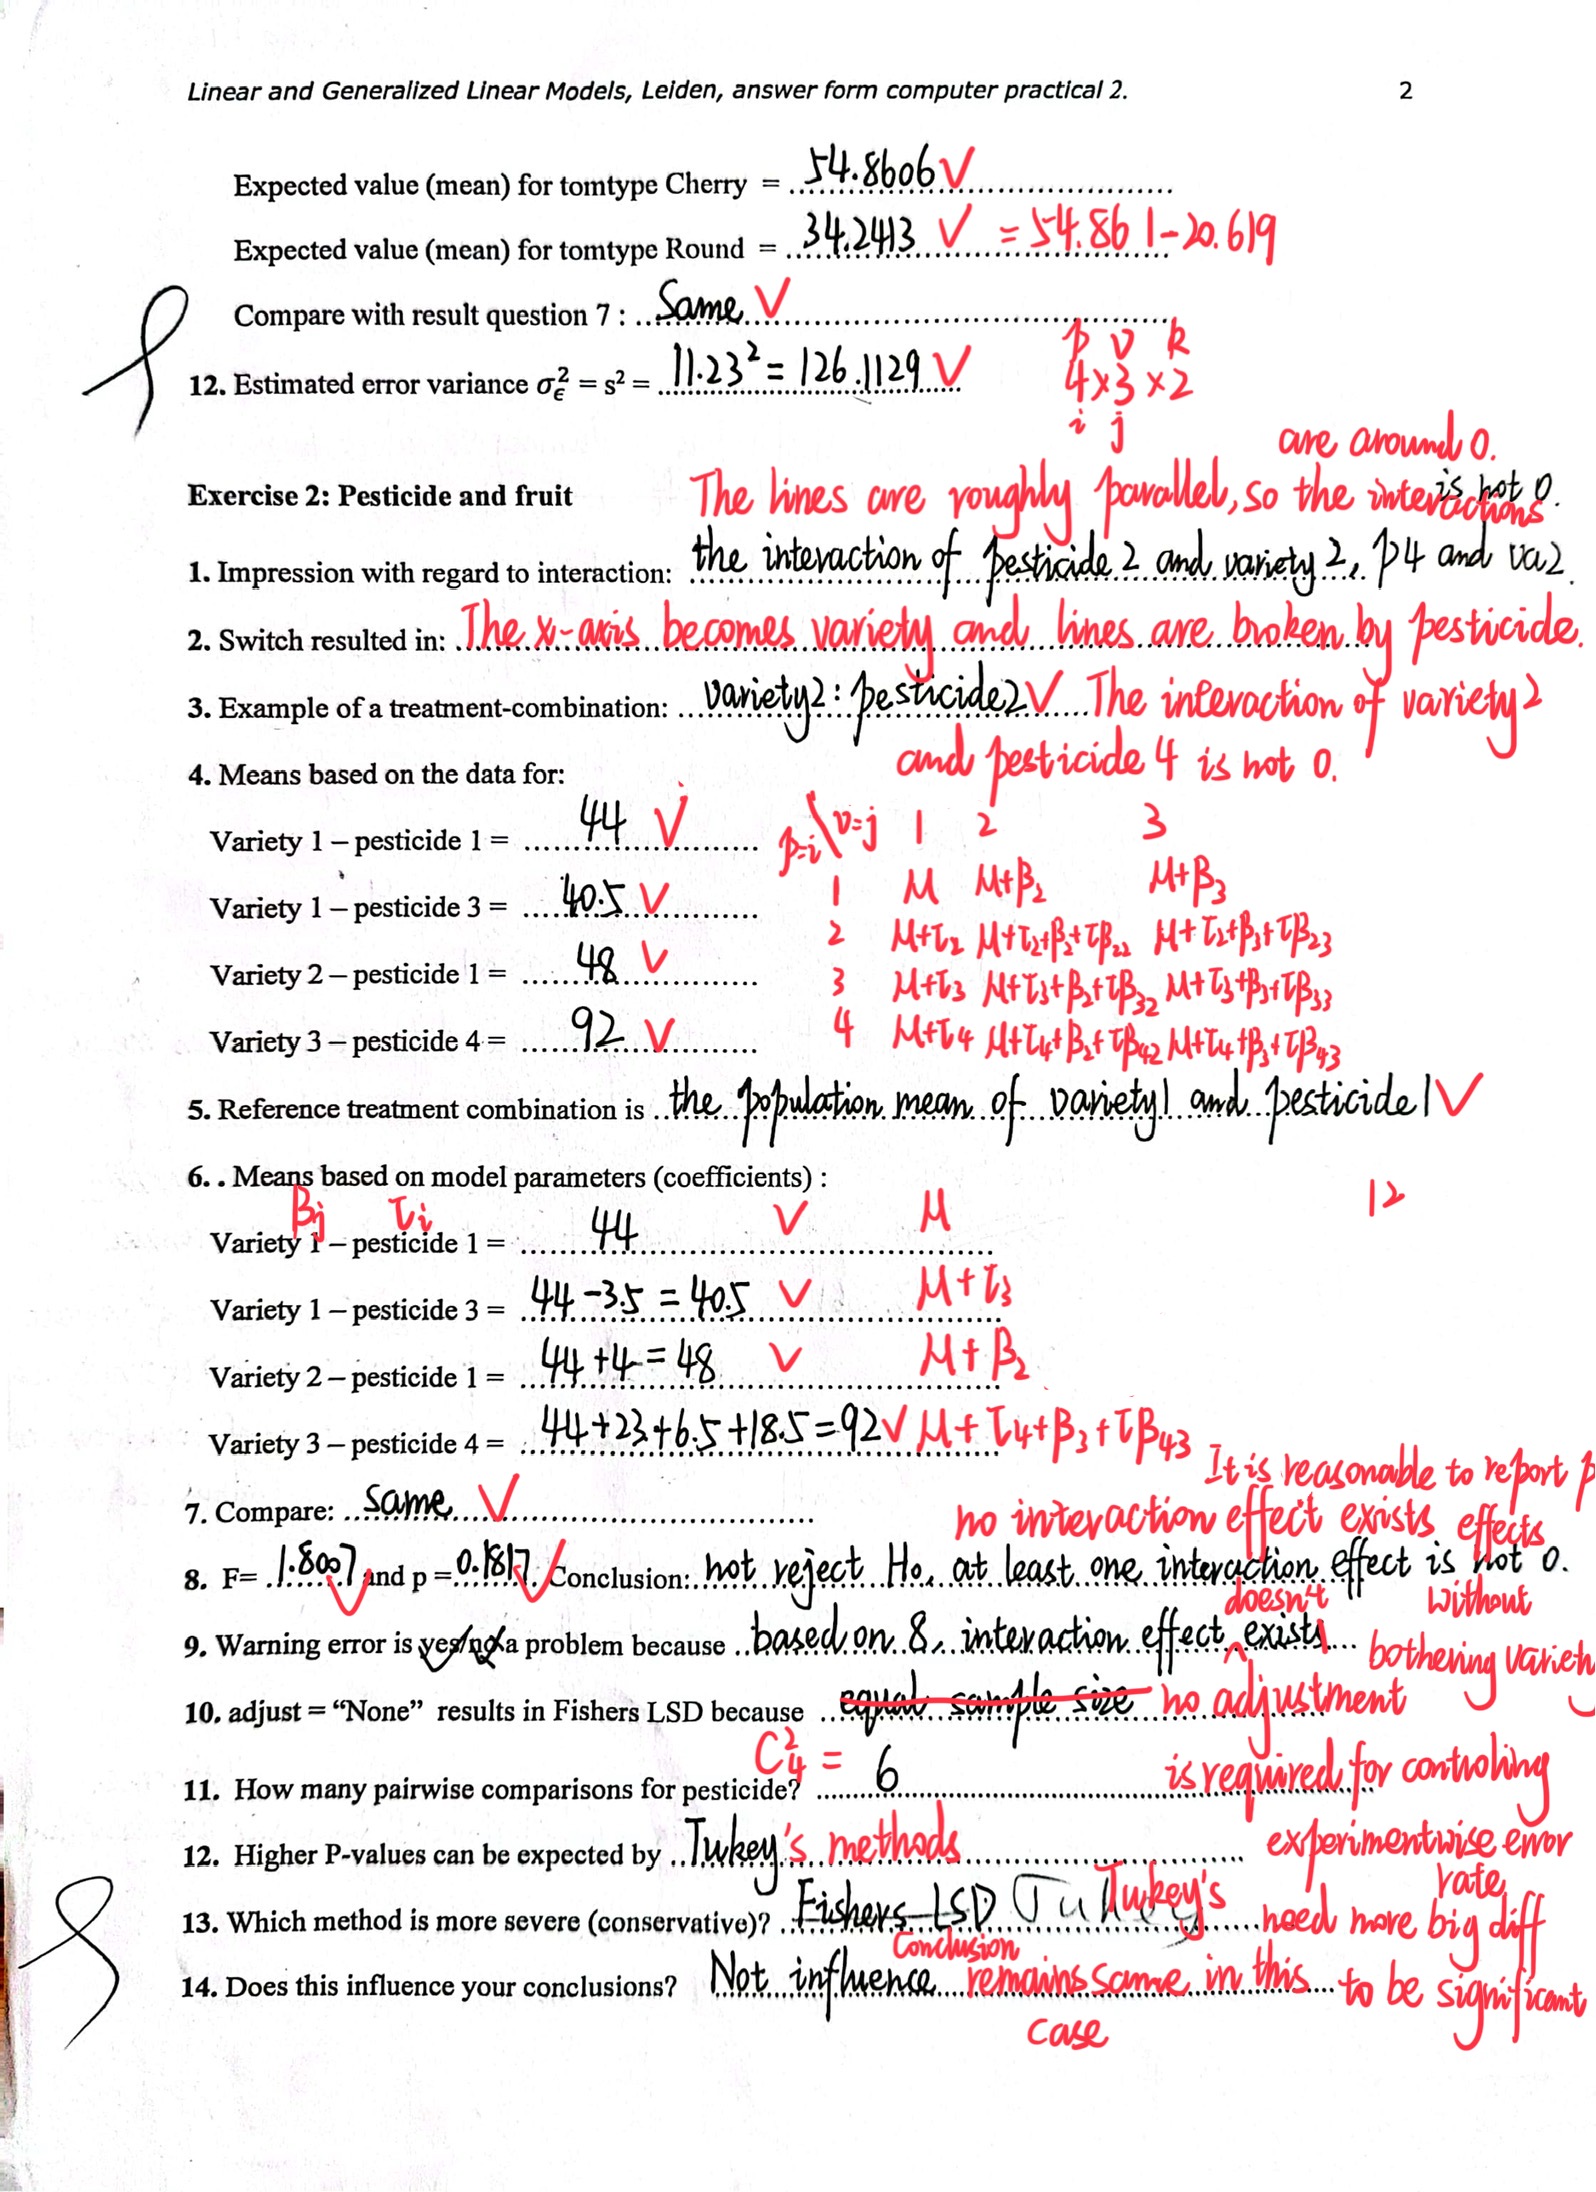 Linear and Generalized Linear Models, Leiden, answer form computer practical 2. 2
Expected value (mean) for tomtype Cherry = 54.8606 V
Expected value (mean) for tomtype Round = 34.2413 V = 54.861-20.619
Compare with result question 7 : Same V
p v k
12. Estimated error variance σ²ϵ = s² = 11.23² = 126.1129 V 4×3×2
i j
are around 0.
Exercise 2: Pesticide and fruit The lines are roughly parallel, so the interactions
is not 0.
1. Impression with regard to interaction: the interaction of pesticide 2 and variety 2, p4 and va2
2. Switch resulted in: The x-axis becomes variety and lines are broken by pesticide.
3. Example of a treatment-combination: variety2:pesticide2 V The interaction of variety 2
and pesticide 4 is not 0.
4. Means based on the data for:
Variety 1 – pesticide 1 = 44 V p=i\v=j 1 2 3
1 μ μ+β2 μ+β3
Variety 1 – pesticide 3 = 40.5 V
2 μ+τ2 μ+τ2+β2+τβ22 μ+τ2+β3+τβ23
Variety 2 – pesticide 1 = 48 V 3 μ+τ3 μ+τ3+β2+τβ32 μ+τ3+β3+τβ33
Variety 3 – pesticide 4 = 92 V 4 μ+τ4 μ+τ4+β2+τβ42 μ+τ4+β3+τβ43
5. Reference treatment combination is the population mean of variety1 and pesticide1 V
6. . Means based on model parameters (coefficients) : 12
βj τi
Variety 1 – pesticide 1 = 44 V μ
Variety 1 – pesticide 3 = 44-3.5 = 40.5 V μ+τ3
Variety 2 – pesticide 1 = 44+4=48 V μ+β2
Variety 3 – pesticide 4 = 44+23+6.5+18.5=92 V μ+τ4+β3+τβ43
It is reasonable to report p
7. Compare: same V no interaction effect exists effects
8. F= 1.8007 V and p = 0.1817 V Conclusion: not reject H0, at least one interaction effect is not 0.
doesn't without
9. Warning error is yes/no a problem because based on 8, interaction effect exists
bothering variety
10. adjust = “None” results in Fishers LSD because equal sample size no adjustment
11. How many pairwise comparisons for pesticide? C²4 = 6 is required for controling
12. Higher P-values can be expected by Tukey's methods experimentwise error
rate
13. Which method is more severe (conservative)? Fishers LSD Tukey Tukey's need more big diff
Conclusion
14. Does this influence your conclusions? Not influence remains same in this to be significant
case